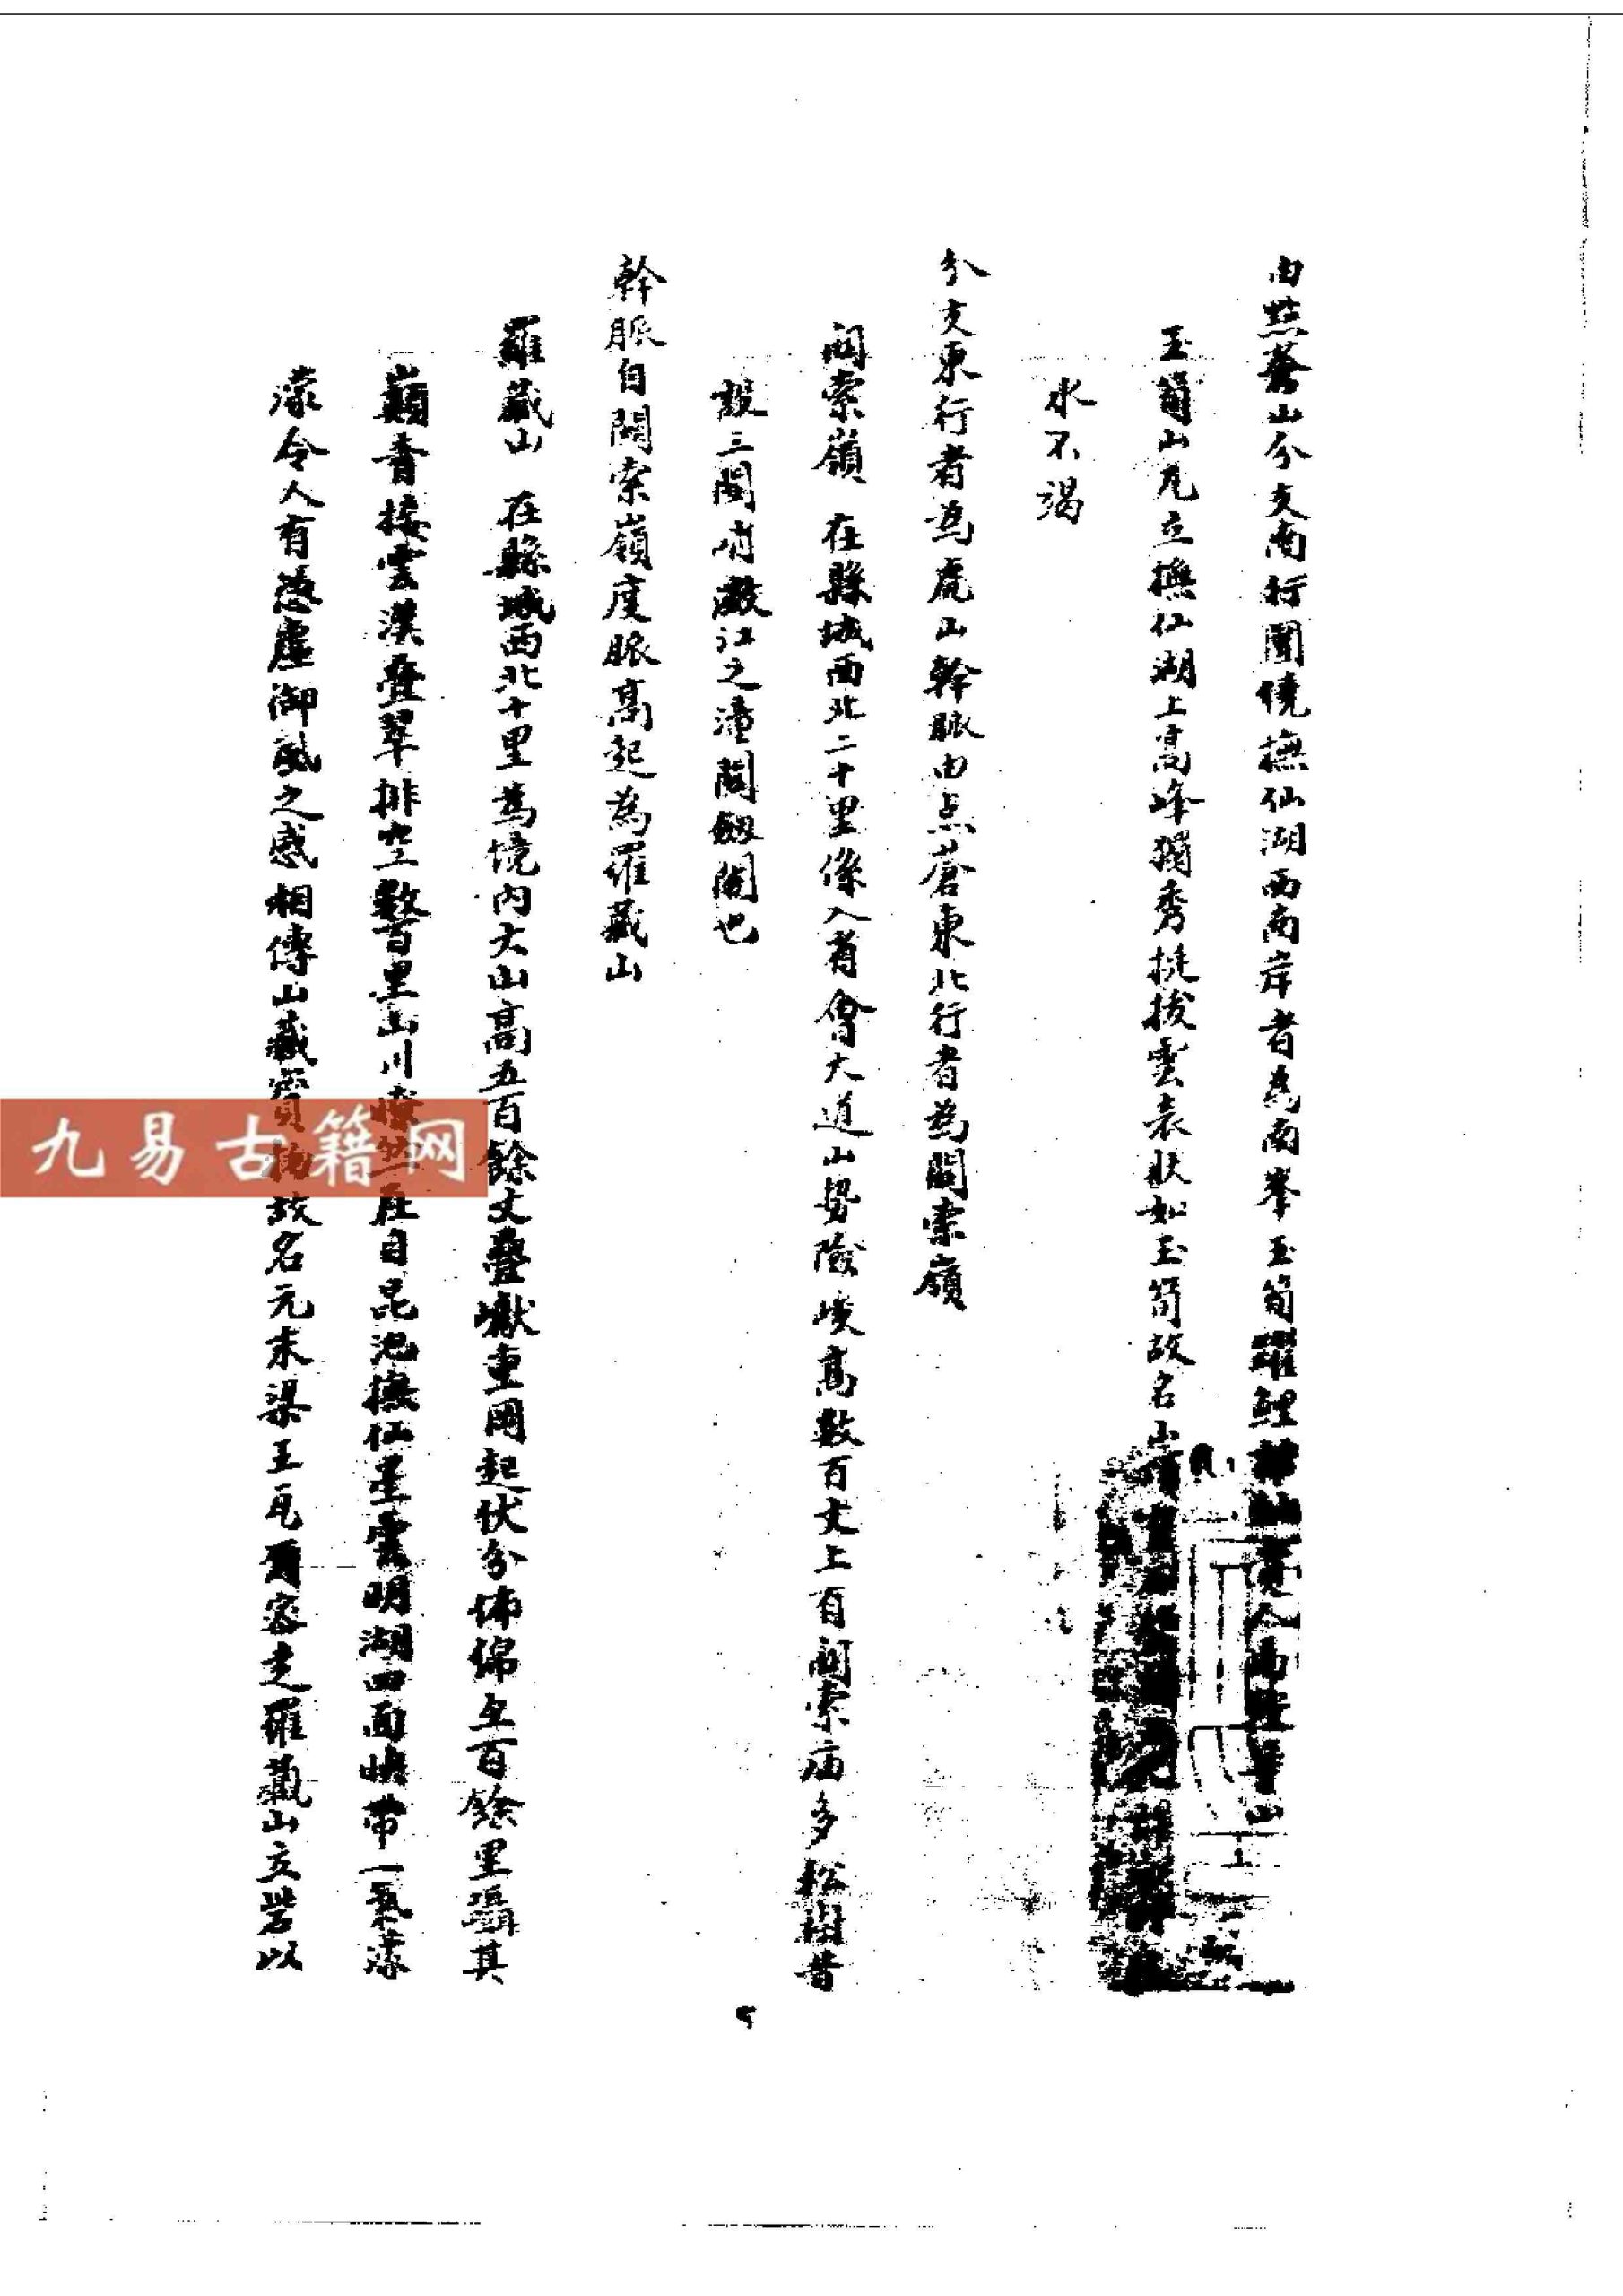 由點蒼山分支南行圍繞撫仙湖西南岸者為南峯玉筍躍鯉
玉筍山兀立撫仙湖上高峰獨秀挺拔雲表狀如玉筍故名山
水不竭
分支東行者為虎山幹脈由点蒼東北行者為關索嶺
關索嶺 在縣城西北二十里係入省會大道山勢險峻高數百丈上有關索庙多松樹昔
設三關哨澂江之潼關劔閣也
幹脈自關索嶺度脈高起為羅藏山
羅藏山 在縣城西北十里為境内大山高五百餘丈疊巘重岡起伏分佈綿亙百餘里躡其
巔青接雲漢疊翠排空數百里山川在目昆池撫仙星雲明湖四面映帶一氣濛
濛令人有憑虛御風之感相傳山藏寶物故名元末梁王瓦爾密走羅藏山立砦以
九易古籍网